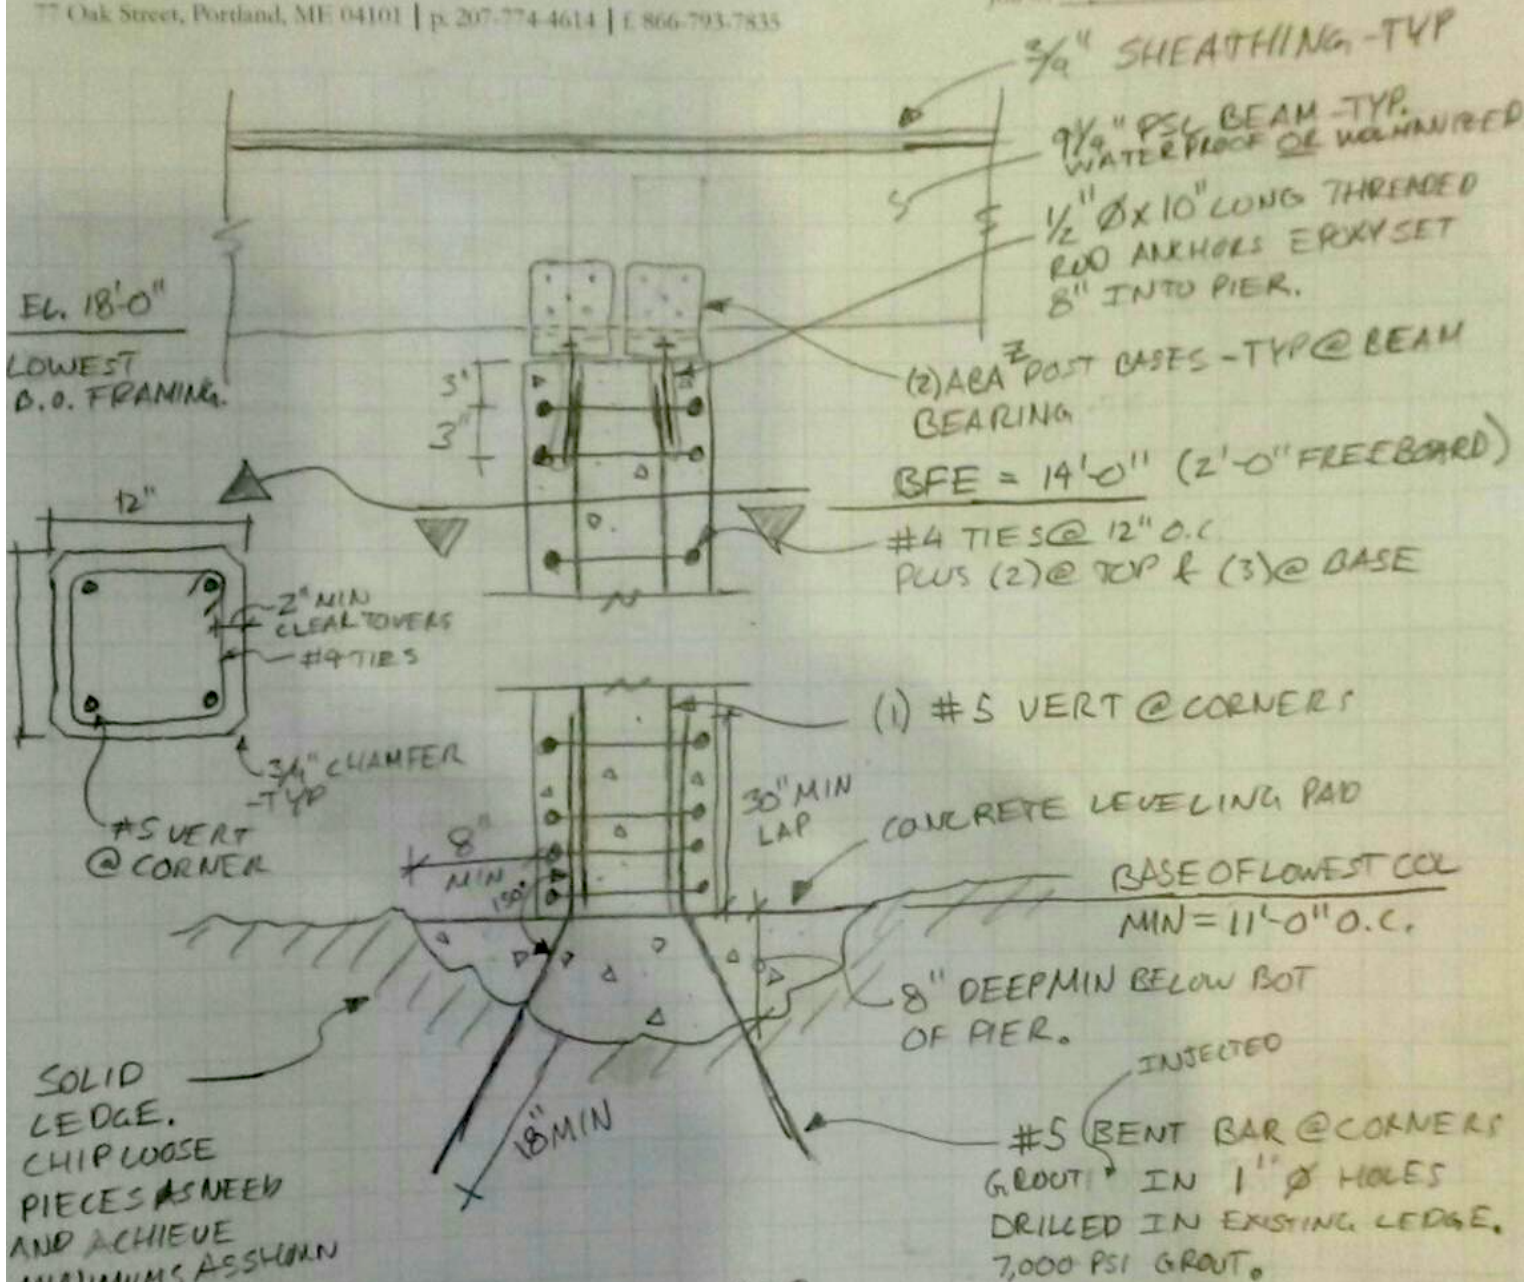 77 Oak Street, Portland, ME 04101 | p. 207-774-4614 | f. 866-793-7835
3/4" SHEATHING - TYP
9 1/4" PSL BEAM - TYP.
WATERPROOF OR WOLMANIZED
1/2" Ø X 10" LONG THREADED
ROD ANCHORS EPOXY SET
8" INTO PIER.
EL. 18'-0"
LOWEST
B.O. FRAMING.
(2) ABA Z POST BASES - TYP @ BEAM
BEARING
3"
3"
BFE = 14'-0" (2'-0" FREEBOARD)
#4 TIES @ 12" O.C.
PLUS (2) @ TOP & (3) @ BASE
12"
2" MIN
CLEAR TO VERS
#4 TIES
3/4" CHAMFER
- TYP
#5 VERT
@ CORNER
(1) #5 VERT @ CORNERS
30" MIN
LAP
CONCRETE LEVELING PAD
8"
MIN
150°
BASE OF LOWEST COL
MIN = 11'-0" O.C.
8" DEEP MIN BELOW BOT
OF PIER.
SOLID
LEDGE.
CHIP LOOSE
PIECES AS NEED
AND ACHIEVE
MINIMUMS AS SHOWN
18" MIN
INJECTED
#5 BENT BAR @ CORNERS
GROUT IN 1" Ø HOLES
DRILLED IN EXISTING LEDGE.
7,000 PSI GROUT.